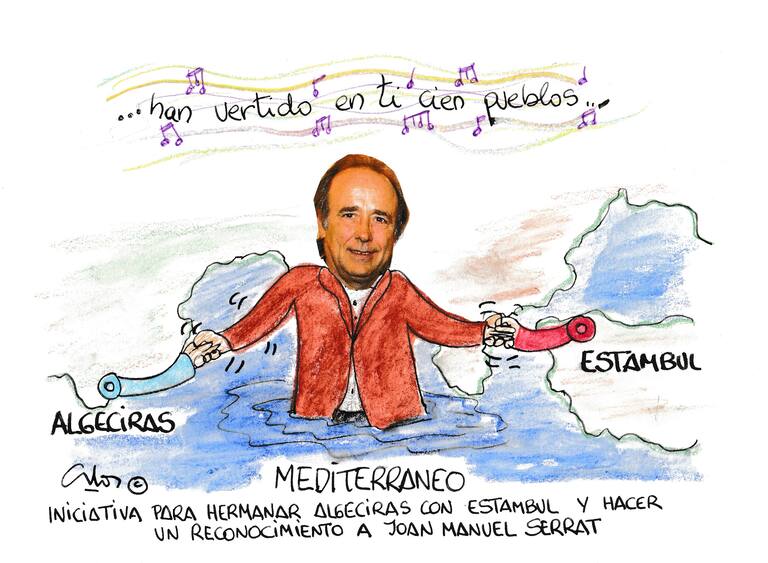 ...han vertido en ti cien pueblos...
ESTAMBUL
ALGECIRAS
MEDITERRANEO
INICIATIVA PARA HERMANAR ALGECIRAS CON ESTAMBUL Y HACER
UN RECONOCIMIENTO A JOAN MANUEL SERRAT